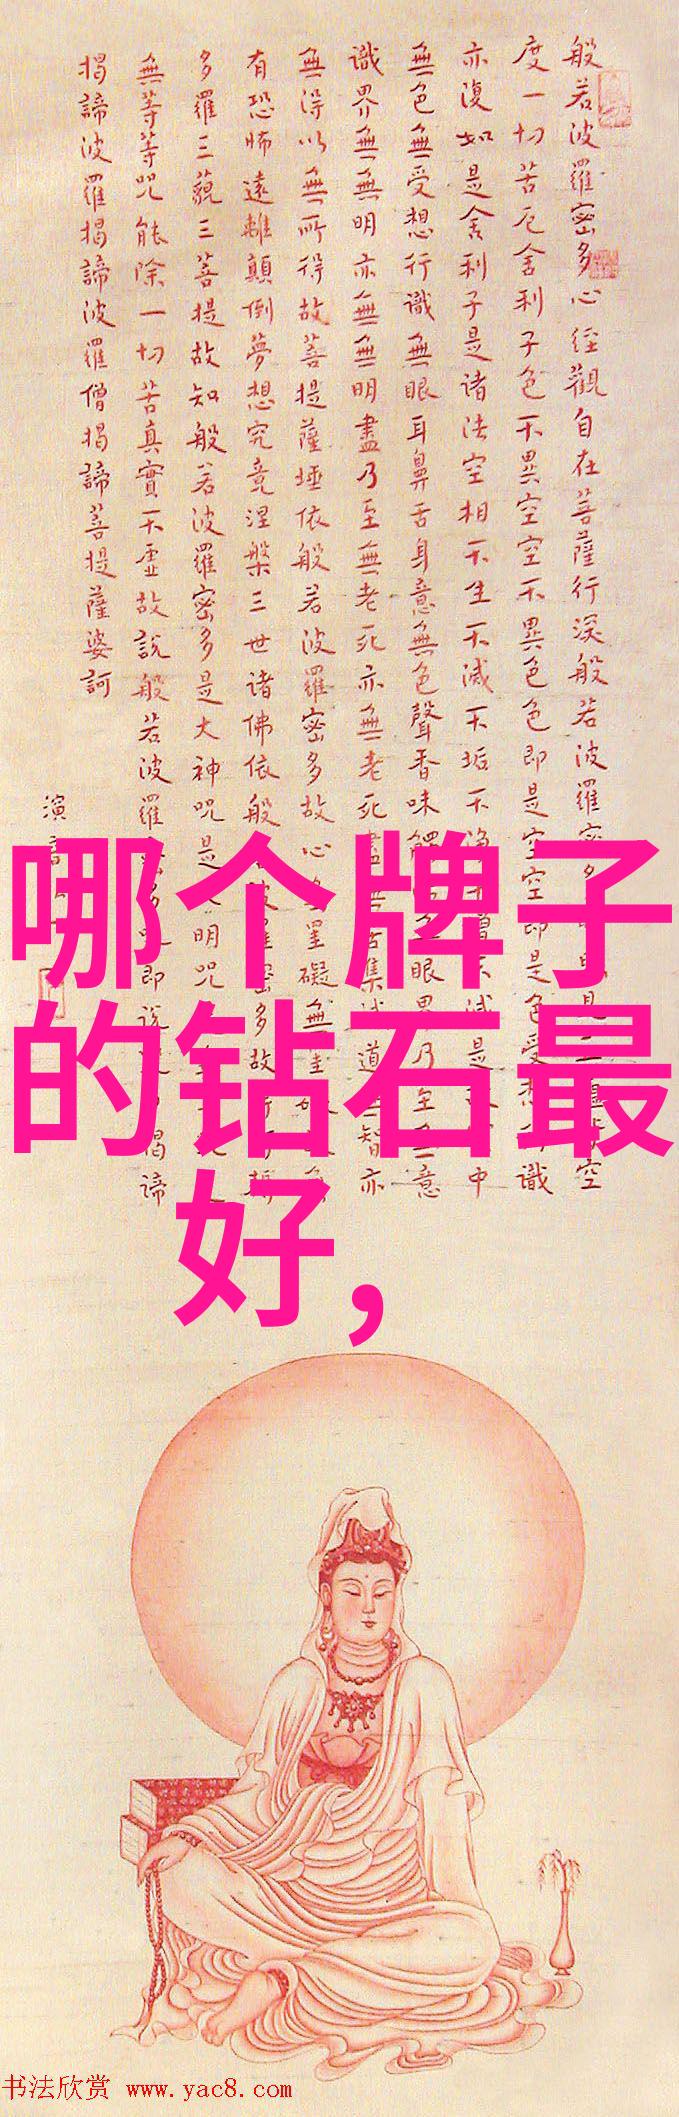 般若波羅密多心經觀自在菩薩行深般若波羅密多
空
度一切苦厄舍利子色不異空空不異色色即是空空即是色受想
識
亦復如是舍利子是诸法空相不生不滅不垢不淨
減是
中
無色無受想行識無眼耳鼻舌身意無色聲香味觸
眼界乃至無意
識界無無明亦無無明盡乃至無老死亦無老死盡
集
道
智亦
無得以無所得故菩提薩埵依般若波羅密多故心
罣礙無罣
有恐怖遠離顛倒夢想究竟涅槃三世诸佛依般
羅密多故
多羅三藐三菩提故知般若波羅密多是大神咒是大明咒
無等等咒能除一切苦真實不虛故說般若波羅
多咒即說咒
揭諦
揭諦波羅揭諦波羅僧揭諦菩提薩婆訶
演音
哪个牌子
的钻石最
好,
书法欣赏 www.yac8.com